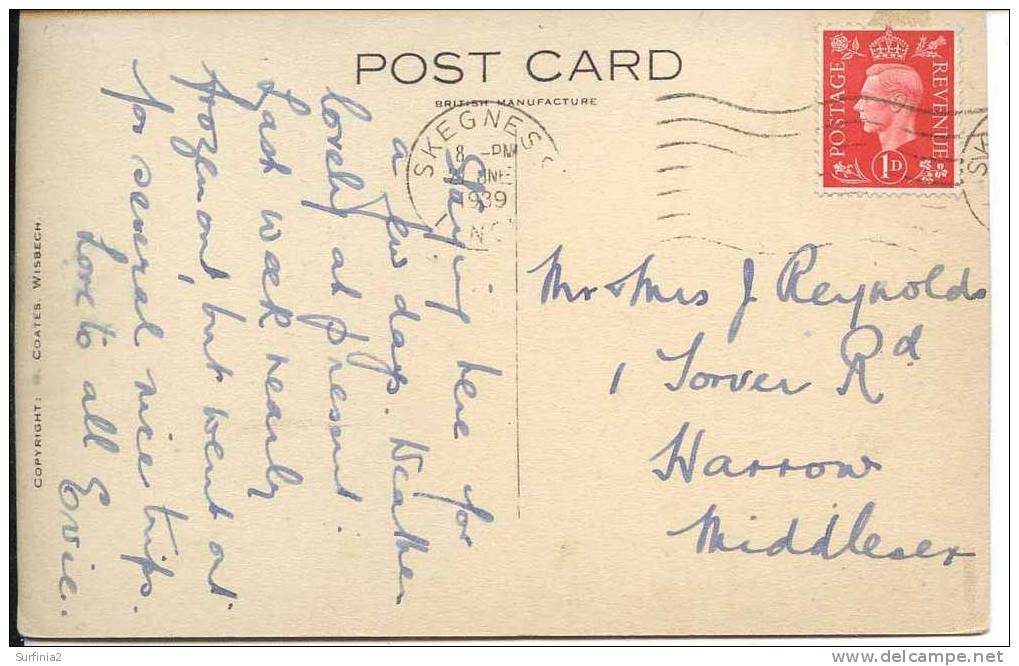 POST CARD
BRITISH MANUFACTURE
POSTAGE REVENUE
1D
SKEGNESS
8 -PM
JNE
1939
Staying here for
a few days. Weather
lovely at present.
Last week nearly
frozen out, but went out
for several nice trips.
Love to all Evie.
Mr & Mrs J. Reynolds
1 Torver Rd
Harrow
Middlesex
COPYRIGHT: COATES, WISBECH
Surfinia2